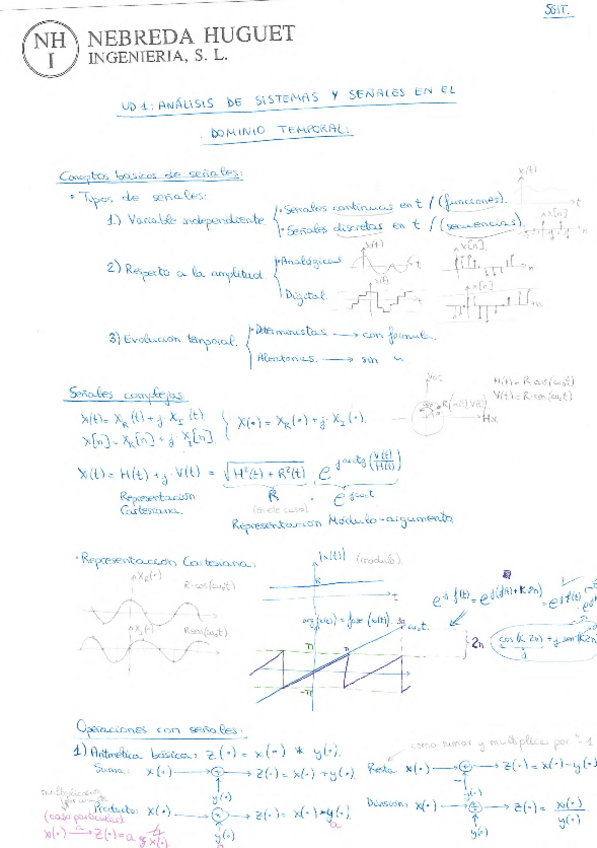 SSIT.
NH
I
NEBREDA HUGUET
INGENIERIA, S. L.
UD 1: ANÁLISIS DE SISTEMAS Y SEÑALES EN EL
DOMINIO TEMPORAL:
Conceptos básicos de señales:
• Tipos de señales:
1) Variable independiente
• Señales continuas en t / (funciones).
• Señales discretas en t / (secuencias).
x(t)
t
x[n]
2) Respecto a la amplitud
• Analógicas
Digital.
x(t)
t
x[n]
n
x(t)
t
x[n]
n
3) Evolución temporal.
• Deterministas → con fórmula.
Aleatorias. → sin "
Señales complejas
x(t) = x_R(t) + j· x_I(t)
x[n] = x_R[n] + j· x_I[n].
x(•) = x_R(•) + j· x_I(•).
H(t) = R·cos(ω₀t)
V(t) = R·sen(ω₀t)
x(t) = H(t) + j· V(t) = √(H²(t) + R²(t)) · e^(j arctg (V(t)/H(t)))
Representación
Cartesiana.
R
(en este caso)
e^(jω₀t)
Representación Módulo-argumento
• Representación Cartesiana:
|x(t)| (módulo)
x_R(•)
R·cos(ω₀t)
R
t
x_I(•)
R·sen(ω₀t)
arg(x(t)) = fase (x(t)).
ω₀t.
π
-π
2π
cos(K·2π) + j sen(K2π)
Operaciones con señales:
1) Aritmética básica: z(•) = x(•) * y(•).
como sumar y multiplicar por -1
Suma: x(•) → + → z(•) = x(•) + y(•)
y(•)
Resta x(•) → + → z(•) = x(•) - y(•)
y(•)
Producto: x(•) → × → z(•) = x(•) * y(•)
y(•)
División: x(•) → ÷ → z(•) = x(•)/y(•)
y(•)
(caso particular)